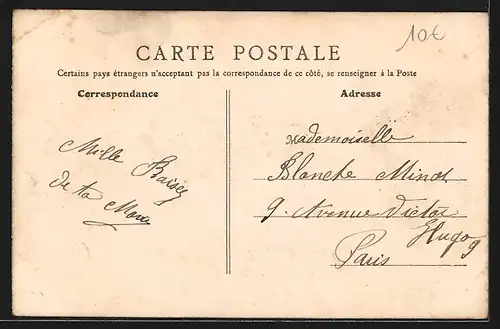 10€
CARTE POSTALE
Certains pays étrangers n'acceptant pas la correspondance de ce côté, se renseigner à la Poste
Correspondance
Adresse
Mille Baisez
de ta
Mademoiselle
Blanche Minot
9. Avenue Victor
Hugo 9
Paris